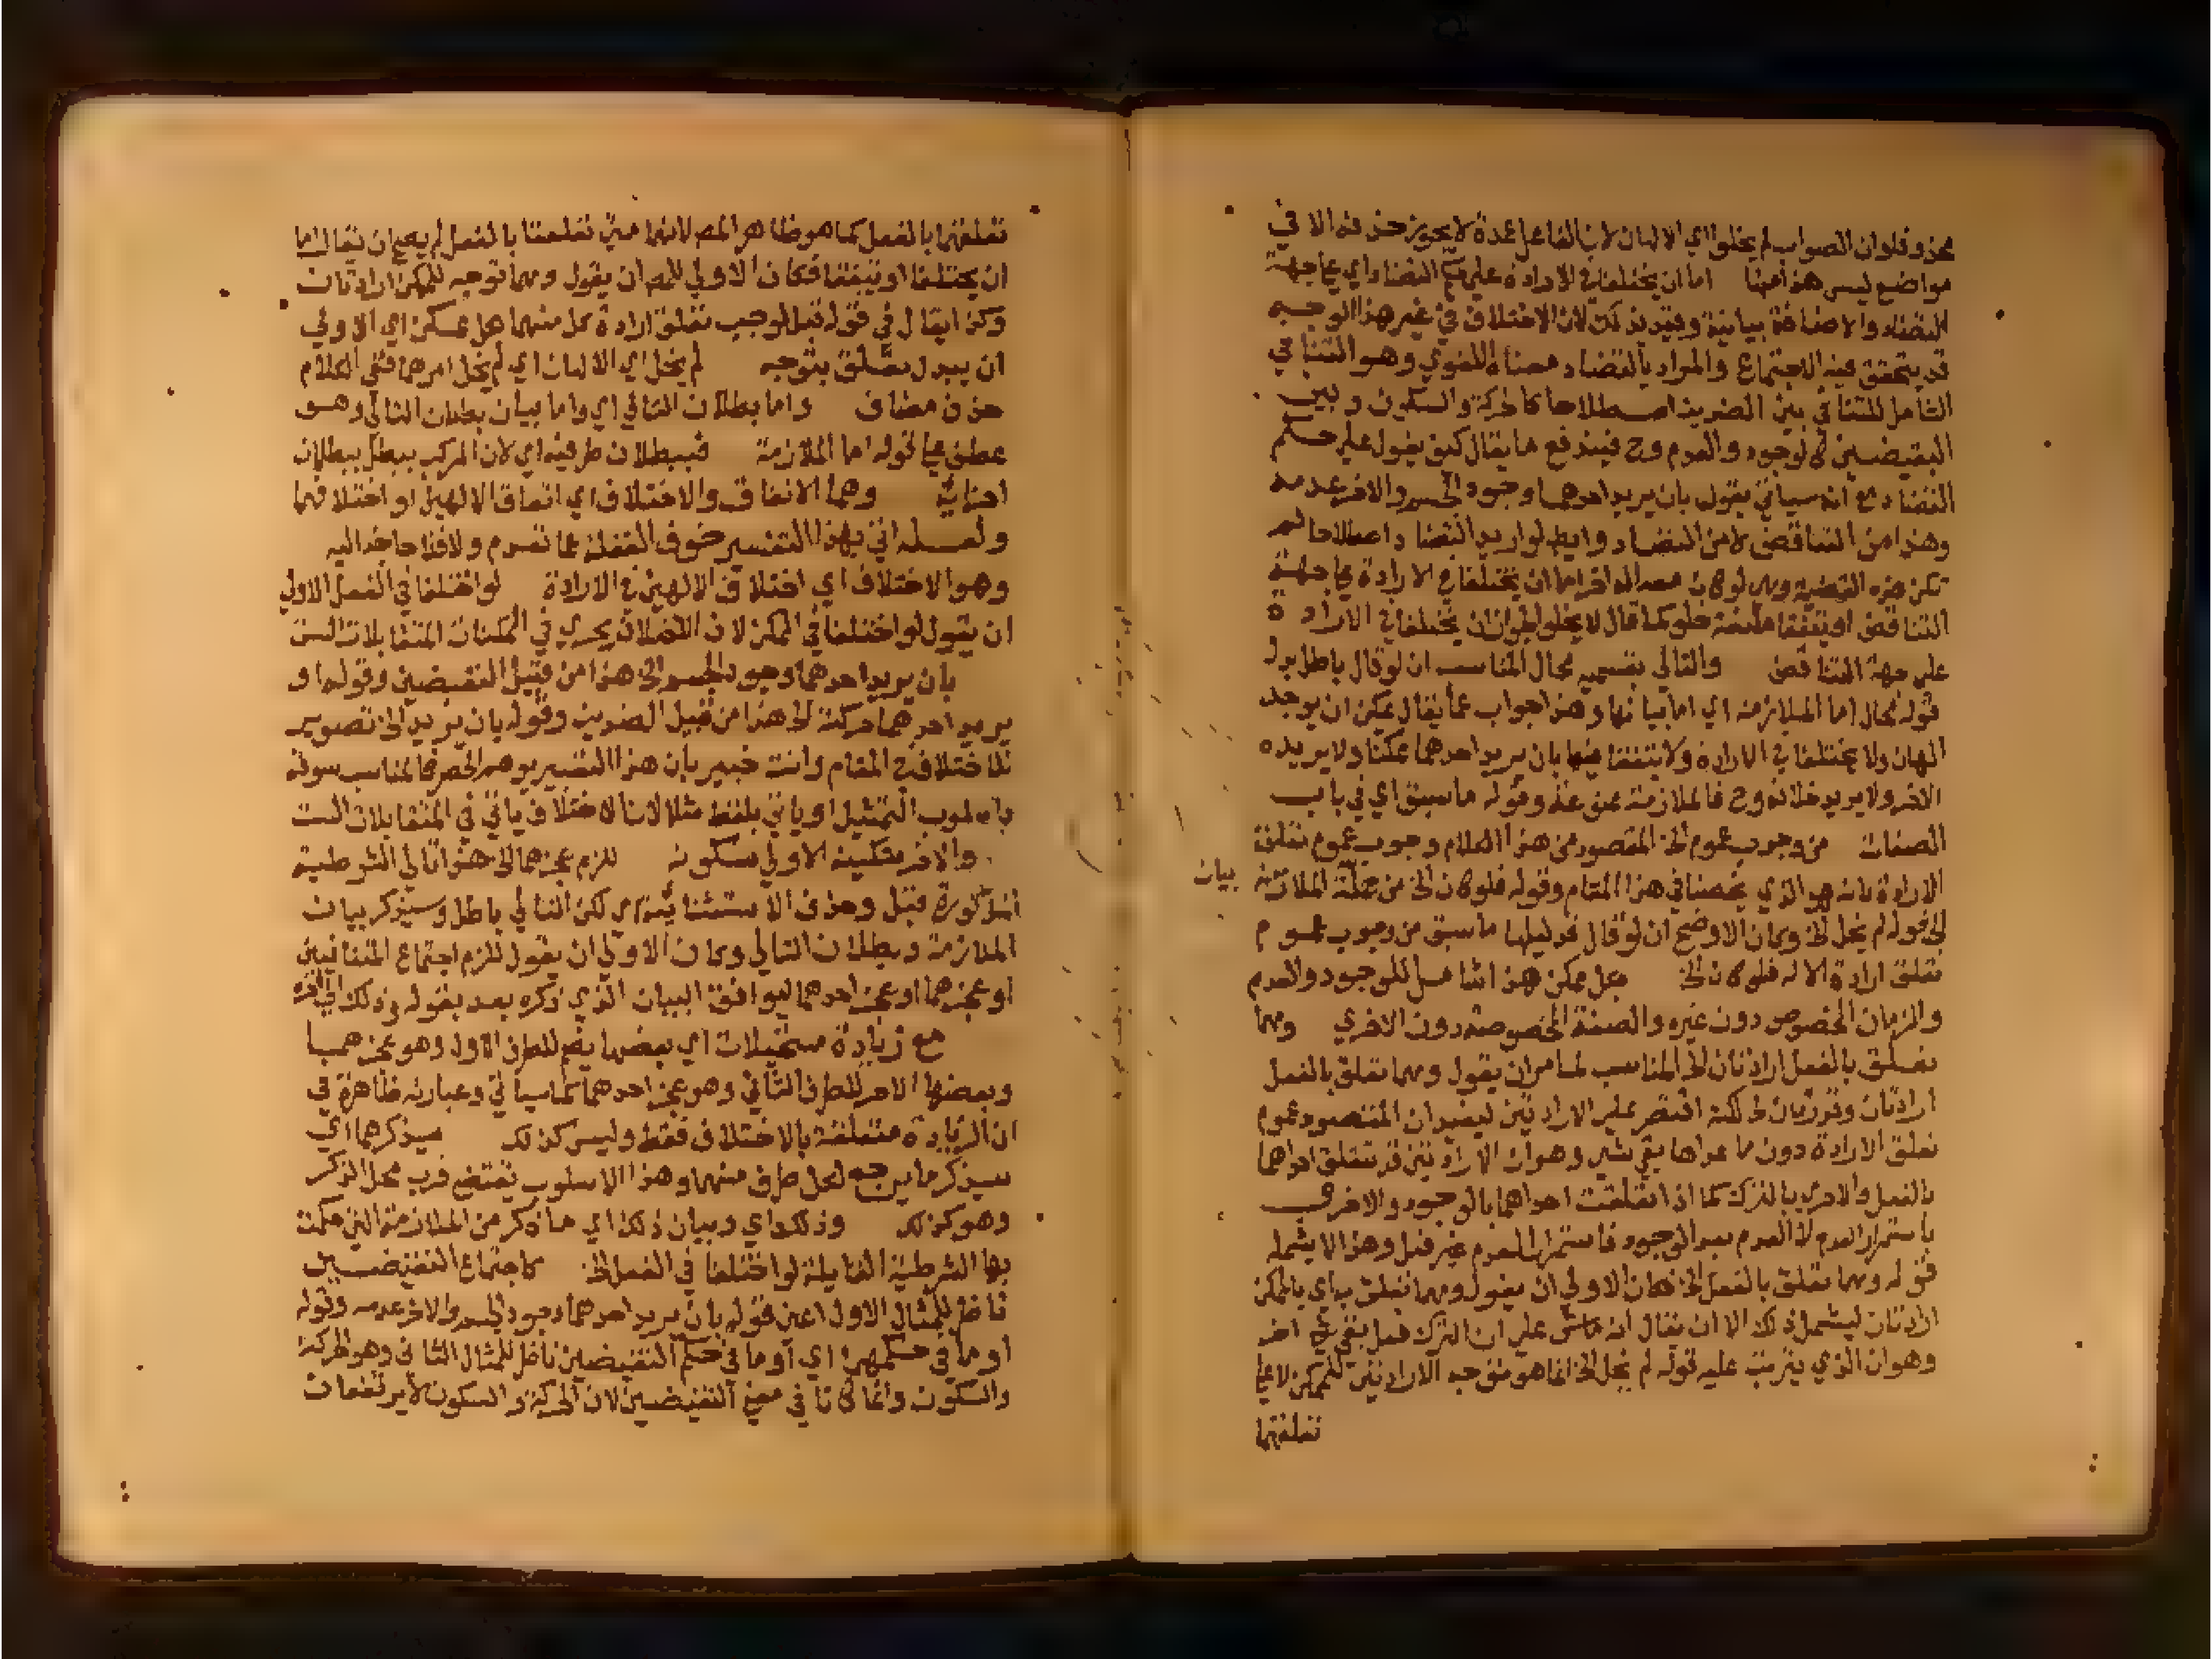 محذوف وان الصواب لم يخلو اي الالهان لان الفاعل عمدة لا يجوز حذفه الا في
مواضع ليس هذا منها اما ان يختلفا في الارادة على حكم التضاد اي على جهة
التضاد والاضافة بيانية وقيد بذلك لان الاختلاف في غير هذا الوجه
قد يتحقق فيه الاجتماع والمراد بالتضاد معناه اللغوي وهو التنافي
الشامل للتنافي بين الضدين اصطلاحا كالحركة والسكون وبين
النقيضين كالوجود والعدم وح فيندفع ما يقال كيف يقول على حكم
التضاد مع انه سياتي يقول بان يريد احدهما وجود الجسم والاخر عدمه
وهذا من التناقض لا من التضاد وايضا لو اريد التضاد اصطلاحا لم
تكن هذه القضية وهى لو كان معه اله اخر اما ان يختلفا في الارادة على جهة
التناقض او يتفقا مانعة خلو كما قال لا يخلو لجواز ان يختلفا في الارادة
على جهة التناقض والتالي بقسميه محال المناسب ان لو قال باطل بدل
قوله محال اما الملازمة اي اما بيانها وهذا جواب عما يقال يمكن ان يوجد
الهان ولا يختلفا في الارادة ولا يتفقا فيها بان يريد احدهما ممكنا ولا يريده
الاخر ولا يريد خلافه وح فالملازمة ممنوعة وقوله ما سبق اي في باب
الصفات من وجوب عموم الخ المقصود من هذا الكلام وجوب عموم تعلق
الارادة لانه هو الذي يخصنا في هذا المقام وقوله فلو كان الخ من جملة الملازمة
بيان
الى قوله لم يخل الخ وكان الاوضح ان لو قال فدليلها ما سبق من وجوب عموم
تعلق ارادة الاله فلو كان الخ بكل ممكن هذا شامل للوجود والعدم
والزمان المخصوص دون غيره والصفة المخصوصة دون الاخرى ومهما
تعلق بالفعل ارادتان الخ المناسب لما مر ان يقول ومهما تعلق بالفعل
ارادتان وقدرتان لكنه اقتصر على الارادتين ليفيد ان المقصود عموم
تعلق الارادة دون ما عداها بقي شي وهو ان الارادتين قد تتعلق احداهما
بالفعل والاخرى بالترك كما اذا تعلقت احداهما بالوجود والاخرى
باستمرار العدم لا العدم بعد الوجود فاستمرار العدم غير فعل وهذا لا يشمله
قوله ومهما تعلق بالفعل الخ فكان الاولى ان يقول ومهما تعلق به اي بالممكن
ارادتان ليشمل ذلك الا ان يقال انه ماش على ان الترك فعل بقي شي اخر
وهو ان الذي يترتب عليه قوله لم يخل الخ انما هو توجه الارادتين للممكن لا على
تعلقهما
تعلقهما بالفعل كما هو ظاهر المص لانهما متى تعلقتا بالفعل لم يصح ان يقال اما
ان يختلفا او يتفقا فكان الاولى للمص ان يقول ومهما توجه للممكن ارادتان
وكذا يقال في قوله قبل لوجب تعلق ارادة كل منهما بكل ممكن اي الاولى
ان يبدل تعلق بتوجه لم يخل اي الالهان اي لم يخل امرهما ففي الكلام
حذف مضاف واما بطلان التالي اي واما بيان بطلان التالي وهو
عطف على قوله اما الملازمة فببطلان طرفيه اي لان المركب يبطل ببطلان
اجزائه وهما الاتفاق والاختلاف اي اتفاق الالهين او اختلافهما
ولعله اتى بهذا التفسير خوف الغفلة عما تقدم والا فلا حاجة اليه
وهو الاختلاف اي اختلاف الالهين في الارادة لو اختلفا في الفعل الاولى
ان يقول لو اختلفا في الممكن لان الاختلاف يجري في الممكنات المتقابلات الست
بان يريد احدهما وجود الجسم الخ هذا من قبيل النقيضين وقوله او
يريد احدهما حركته الخ هذا من قبيل الضدين وقوله بان يريد الخ تصوير
للاختلاف في المقام وانت خبير بان هذا التفسير يوهم الحصر فالمناسب سوقه
باسلوب التمثيل او ياتي بلفظ مثلا لان الاختلاف ياتي في المتقابلات الست
والاخر تسكينه الاولى سكونه للزم عجزهما الخ هذا تالي الشرطية
المذكورة قبل وحذف الاستثنائية اي لكن التالي باطل وسيذكر بيان
الملازمة وبطلان التالي وكان الاولى ان يقول للزم اجتماع المتنافيين
او عجزهما او عجز احدهما ليوافق البيان الذي ذكره بعد بقوله وذلك الى اخره
مع زيادة مستحيلات اي بعضها يضم للطرف الاول وهو عجزهما
وبعضها الاخر للطرف الثاني وهو عجز احدهما كما سياتي وعبارته ظاهرة في
ان الزيادة متعلقة بالاختلاف فقط وليس كذلك سيذكرها اي
سيذكر ما يرجع لكل طرف منهما وهذا الاسلوب يقتضي قرب محل الذكر
وهو كذلك وذلك اي وبيان ذلك اي ما ذكر من الملازمة التي حكمت
بها الشرطية القايلة لو اختلفا في الفعل الخ كاجتماع النقيضين
ناظر للمثال الاول اعني قوله بان يريد احدهما وجود الجسم والاخر عدمه وقوله
او ما في حكمهما اي او ما في حكم النقيضين ناظر للمثال الثاني وهو الحركة
والسكون وانما كانا في معنى النقيضين لان الحركة والسكون لا يرتفعان